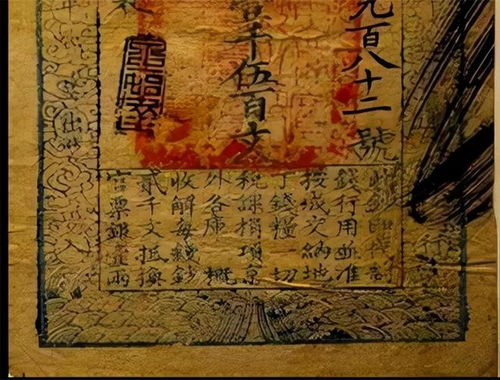 九百八十二號
壹千伍百文
此鈔即代制
錢行用並准
按成交納地
丁錢糧一切
稅課捐項京
外各庫一概
收解每錢鈔
貳千文抵換
官票銀壹兩
行
出入